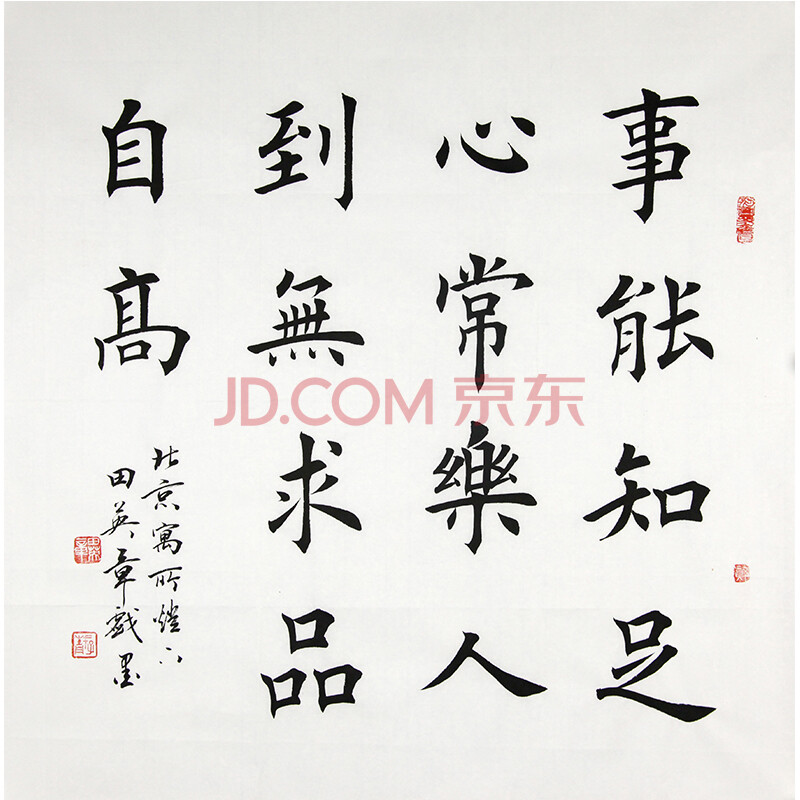 事能知足
心常樂人
到無求品
自高
北京寓所燈下
田英章戲墨
JD.COM 京东